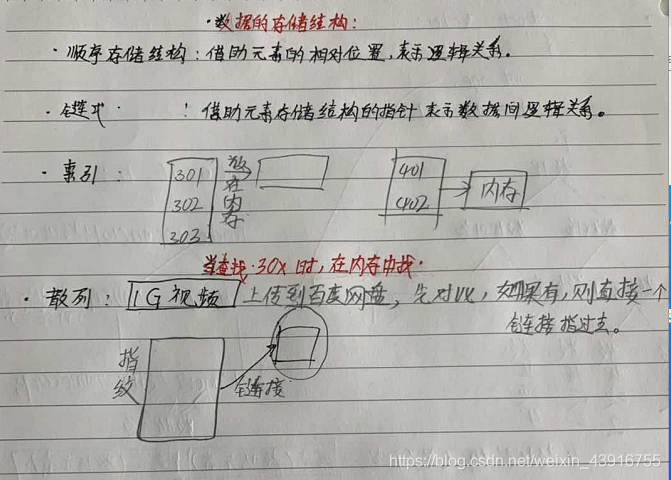 ·数据的存储结构:
·顺序存储结构:借助元素的相对位置,表示逻辑关系。
·链式 · ! 借助元素存储结构的指针表示数据间逻辑关系。
·索引:
301
302
303
放在内存
401
402
内存
当查找·30x时,在内存中找·
·散列: 1G视频 上传到百度网盘,先对比,如果有,则直接一个
链接指过去。
指纹
链接
https://blog.csdn.net/weixin_43916755